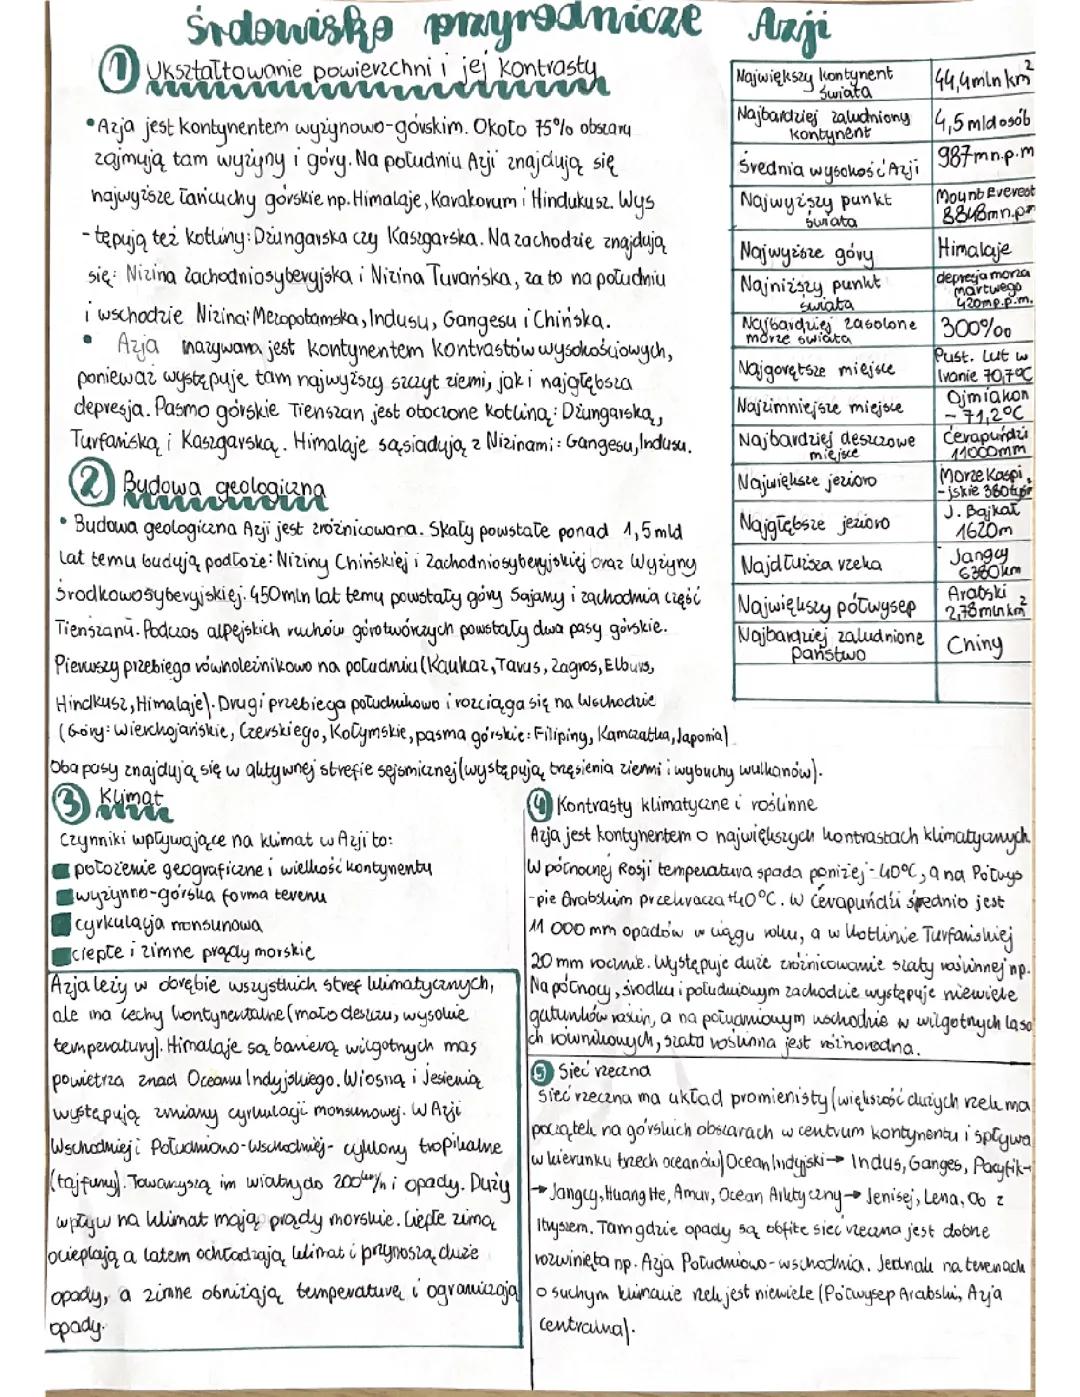 Środowisko przyrodnicze Azji
① Ukształtowanie powierzchni i jej kontrasty
• Azja jest kontynentem wyżynowo-górskim. Około 75% obszaru
zajmują tam wyżyny i góry. Na południu Azji znajdują się
najwyższe łańcuchy górskie np. Himalaje, Karakorum i Hindukusz. Wys
-tępują też kotliny: Dżungarska czy Kaszgarska. Na zachodzie znajdują
się: Nizina Zachodniosyberyjska i Nizina Turańska, za to na południu
i wschodzie Nizina: Mezopotamska, Indusu, Gangesu i Chińska.
• Azja nazywana jest kontynentem kontrastów wysokościowych,
ponieważ występuje tam najwyższy szczyt ziemi, jak i najgłębsza
depresja. Pasmo górskie Tienszan jest otoczone kotliną: Dżungarską,
Turfańską i Kaszgarską. Himalaje sąsiadują z Nizinami: Gangesu, Indusu.
② Budowa geologiczna
• Budowa geologiczna Azji jest zróżnicowana. Skały powstałe ponad 1,5 mld
lat temu budują podłoże: Niziny Chińskiej i Zachodniosyberyjskiej oraz Wyżyny
Środkowosyberyjskiej. 450mln lat temu powstały góry Sajany i zachodnia część
Tienszanu. Podczas alpejskich ruchów górotwórczych powstały dwa pasy górskie.
Pierwszy przebiega równoleżnikowo na południu (Kaukaz, Taurus, Zagros, Elburs,
Hindkusz, Himalaje). Drugi przebiega południkowo i rozciąga się na Wschodzie
(Góry: Wierchojańskie, Czerskiego, Kołymskie, pasma górskie: Filipiny, Kamczatka, Japonia).
Oba pasy znajdują się w aktywnej strefie sejsmicznej (występują trzęsienia ziemi i wybuchy wulkanów).
Największy kontynent świata 44,4mln km²
Najbardziej zaludniony kontynent 4,5 mld osób
Średnia wysokość Azji 987m n.p.m
Najwyższy punkt świata Mount Everest 8848m n.pm
Najwyższe góry Himalaje
Najniższy punkt świata depresja morza martwego 420m p.p.m.
Najbardziej zasolone morze świata 300‰
Najgorętsze miejsce Pust. Lut w Iranie 70,7°C
Najzimniejsze miejsce Ojmiakon -71,2°C
Najbardziej deszczowe miejsce Ćerapuńdźi 11000mm
Największe jezioro Morze Kaspi-jskie
Najgłębsze jezioro J. Bajkał 1620m
Najdłuższa rzeka Jangcy 6380km
Największy półwysep Arabski 2,78mln km²
Najbardziej zaludnione państwo Chiny
③ Klimat
Czynniki wpływające na klimat w Azji to:
położenie geograficzne i wielkość kontynentu
wyżynno-górska forma terenu
cyrkulacja monsunowa
ciepłe i zimne prądy morskie
Azja leży w obrębie wszystkich stref klimatycznych,
ale ma cechy kontynentalne (mało deszczu, wysokie
temperatury). Himalaje są barierą wilgotnych mas
powietrza znad Oceanu Indyjskiego. Wiosną i Jesienią
występują zmiany cyrkulacji monsunowej. W Azji
Wschodniej i Południowo-wschodniej- cyklony tropikalne
(tajfuny). Towarzyszą im wiatry do 200km/h i opady. Duży
wpływ na klimat mają prądy morskie. Ciepłe zimą
ocieplają a latem ochładzają klimat i przynoszą duże
opady, a zimne obniżają temperaturę i ograniczają
opady.
④ Kontrasty klimatyczne i roślinne
Azja jest kontynentem o największych kontrastach klimatycznych.
W północnej Rosji temperatura spada poniżej -40°C, a na Półwys
-pie Arabskim przekracza +40°C. W Ćerapuńdźi średnio jest
11 000 mm opadów w ciągu roku, a w kotlinie Turfańskiej
20 mm rocznie. Występuje duże zróżnicowanie szaty roślinnej np.
Na północy, środku i południowym zachodzie występuje niewiele
gatunków roślin, a na południowym wschodzie w wilgotnych lasa
ch równikowych, szata roślinna jest różnorodna.
⑤ Sieć rzeczna
Sieć rzeczna ma układ promienisty (większość dużych rzek ma
początek na górskich obszarach w centrum kontynentu i spływa
w kierunku trzech oceanów) Ocean Indyjski → Indus, Ganges, Pacyfik→
→ Jangcy, Huang He, Amur, Ocean Arktyczny → Jenisej, Lena, Ob z
Irtyszem. Tam gdzie opady są obfite sieć rzeczna jest dobrze
rozwinięta np. Azja Południowo-wschodnia. Jednak na terenach
o suchym klimacie rzek jest niewiele (Półwysep Arabski, Azja
centralna).